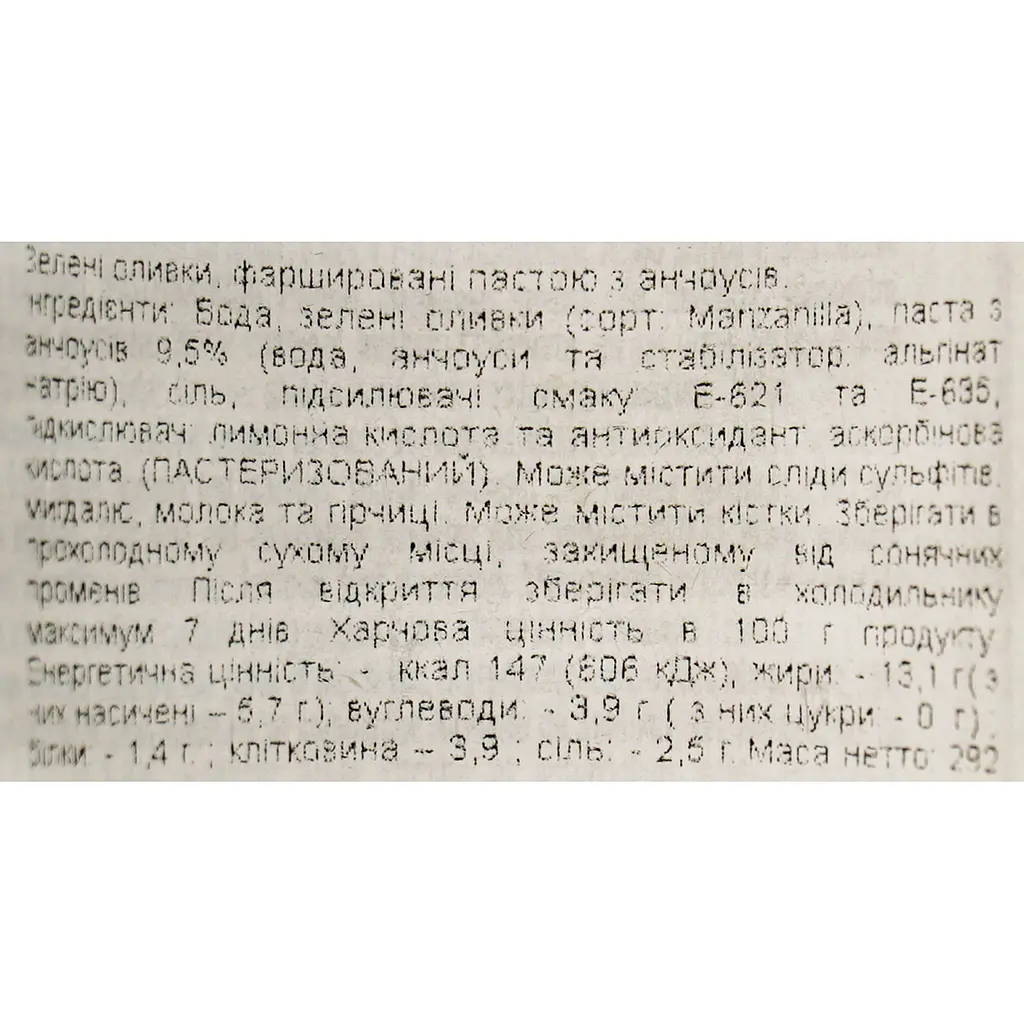 Зелені оливки, фаршировані пастою з анчоусів.
Інгредієнти: Вода, зелені оливки (сорт: Manzanilla), паста з
анчоусів 9,5% (вода, анчоуси та стабілізатор: альгінат
натрію), сіль, підсилювачі смаку Е-621 та Е-635,
підкислювач: лимонна кислота та антиоксидант: аскорбінова
кислота. (ПАСТЕРИЗОВАНИЙ). Може містити сліди сульфітів,
мигдалю, молока та гірчиці. Може містити кістки. Зберігати в
прохолодному сухому місці, захищеному від сонячних
променів. Після відкриття зберігати в холодильнику
максимум 7 днів. Харчова цінність в 100 г продукту:
Енергетична цінність: - ккал 147 (606 кДж), жири: - 13,1 г( з
них насичені – г.); вуглеводи: - 3,9 г. ( з них цукри: - 0 г) ;
білки: - 1,4 г. ; клітковина – 3,9 ; сіль: - г. Маса нетто: 292